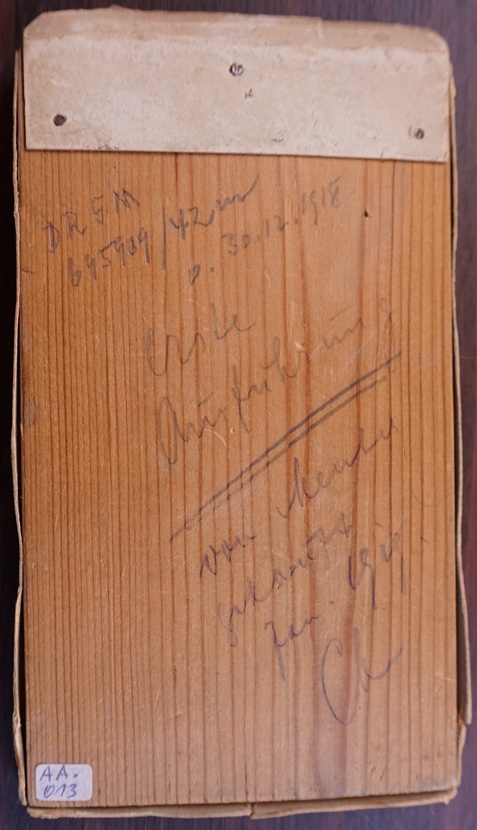 DRGM
695909/42m
v. 30.12.1918.
Erste
Ausführung
von
gekauft
Jan. 1919.
AA.
013